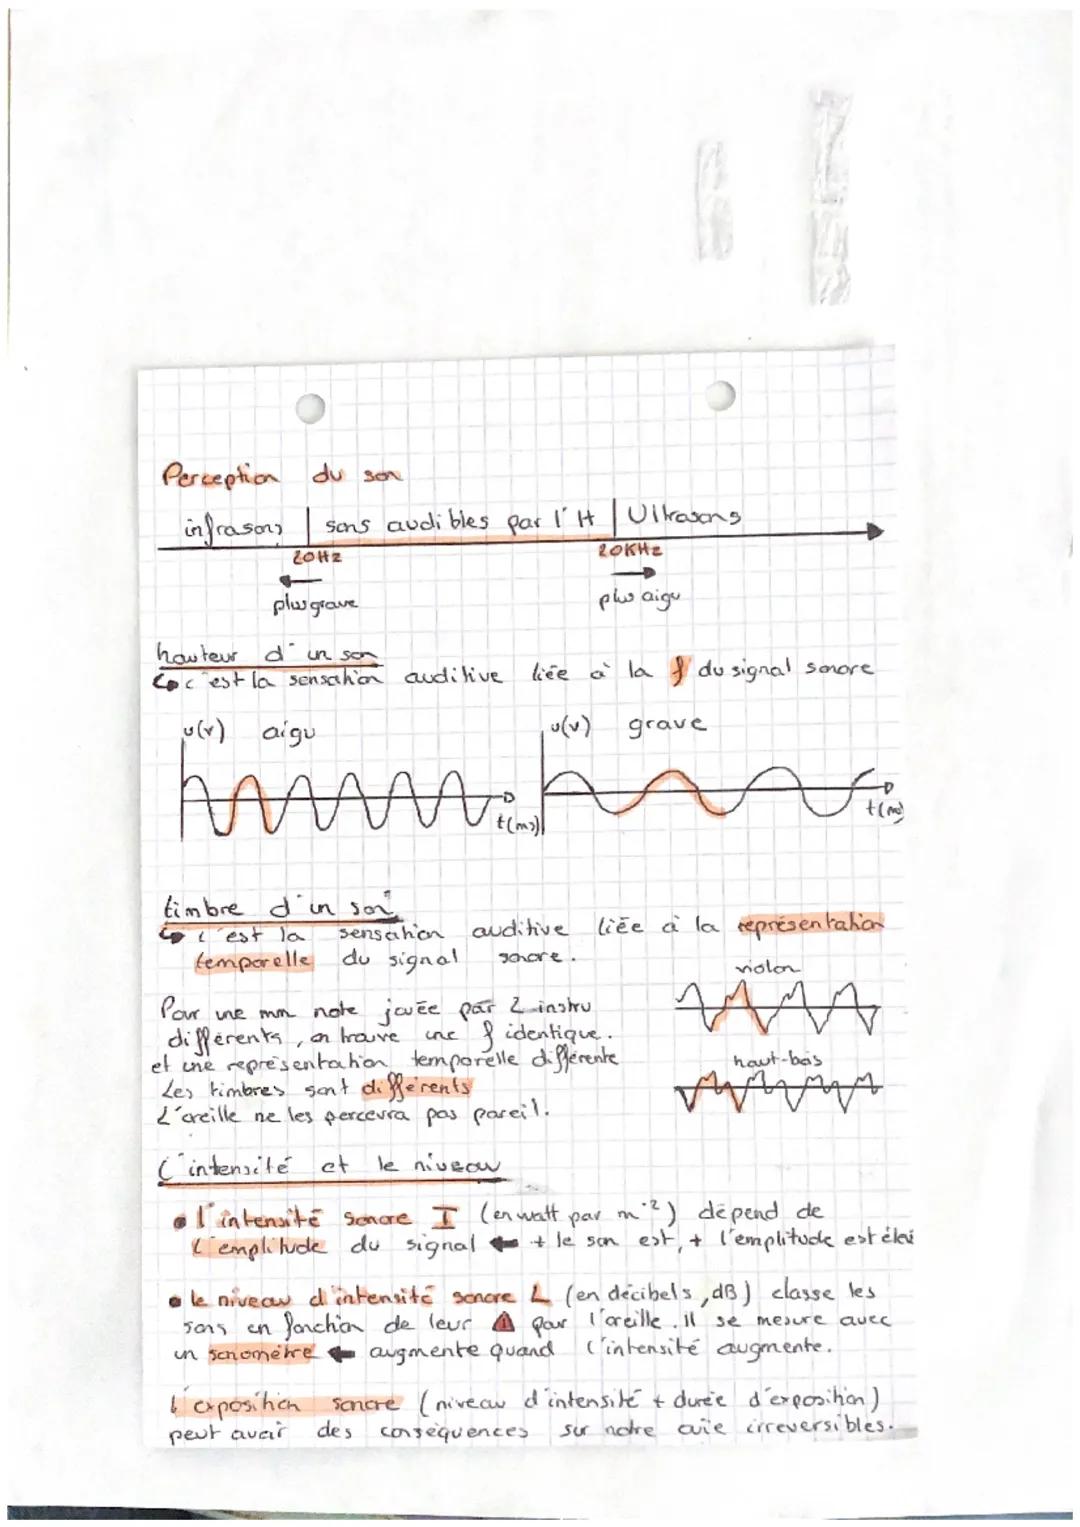 Perception du son
infrasons | sons audibles par l'H | Ultrasons
20Hz 20KHz
plus grave plus aigu
hauteur d'un son
↳ c'est la sensation auditive liée à la f du signal sonore
u(v) aigu u(v) grave
t(ms) t(ms)
timbre d'un son
↳ c'est la sensation auditive liée à la représentation
temporelle du signal sonore.
violon
Pour une mm note jouée par 2 instru
différents, on trouve une f identique.
et une représentation temporelle différente
haut-bois
Les timbres sont différents
L'oreille ne les percevra pas pareil.
L'intensité et le niveau
• l'intensité sonore I (en watt par m⁻²) dépend de
l'emplitude du signal ← + le son est, + l'emplitude est élevé
• le niveau d'intensité sonore L (en décibels, dB) classe les
sons en fonction de leur ⚠ pour l'oreille. Il se mesure avec
un sonomètre ← augmente quand l'intensité augmente.
L'exposition sonore (niveau d'intensité + durée d'exposition)
peut avoir des conséquences sur notre ouïe irreversibles.